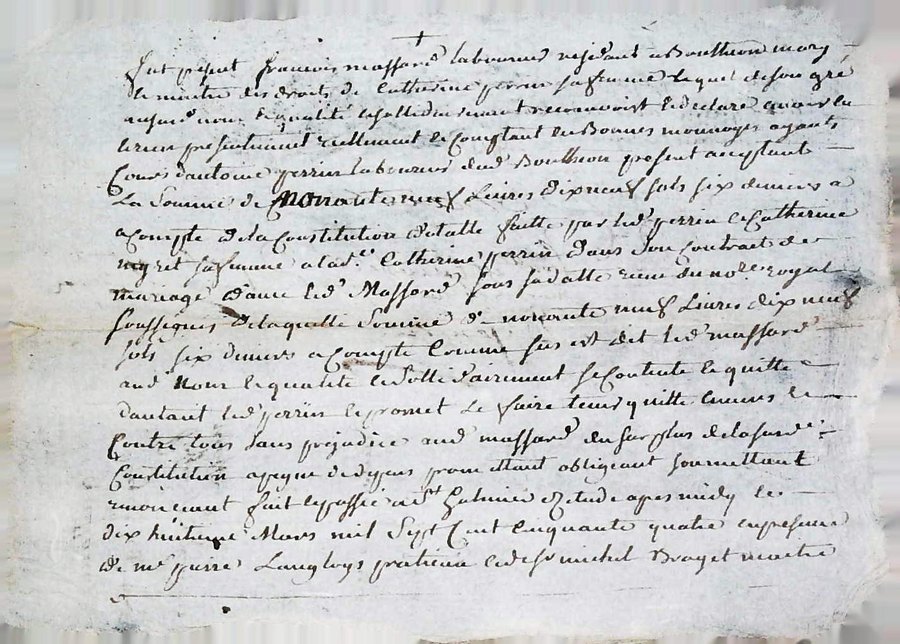 fut présent francois massard laboureur residant a Boutheon mary
et maitre des droits de Catherine perrin sa femme lequel de son gré
aud nom & qualité & solidairement reconnoist & declare avoir eu
& receu presentement reellement & comptant en Bonnes monnoyes ayants
Cours d'antoine perrin laboureur dud Bouthion present acceptant
La somme de Nonante neuf Livres dix neuf sols six deniers a
a Compte de la Constitution dotalle faitte par led perrin & Catherine
sa femme a lad Catherine perrin dans son Contract de
mariage d'avec led Massard sous sa datte receu du no.re royal
soussignes de laquelle Somme de nonante neuf Livres dix neuf
sols six deniers a Compte Comme sus est dit led massard
aud Nom & qualité & sollidairement se Contente & quitte
d'autant led perrin & promet le faire tenir quitte envers &
Contre tous sans prejudice aud massard du surplus de lasusd
Constitution a peyne de depens promettant obligeant soumettant
renoncement fait & passé a St Galmier Etude apres midy le
dix huitieme Mars mil Sept Cent Cinquante quatre en presence
de me pierre Langloys praticien & de sr michel Bouget maitre